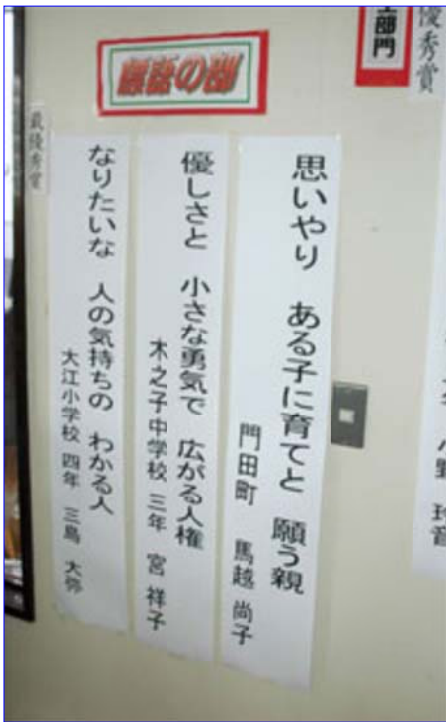 標語の部
優秀賞
思いやり ある子に育てと 願う親
門田町 馬越 尚子
優しさと 小さな勇気で 広がる人権
木之子中学校 三年 宮 祥子
なりたいな 人の気持ちの わかる人
大江小学校 四年 三島 大弥
最優秀賞